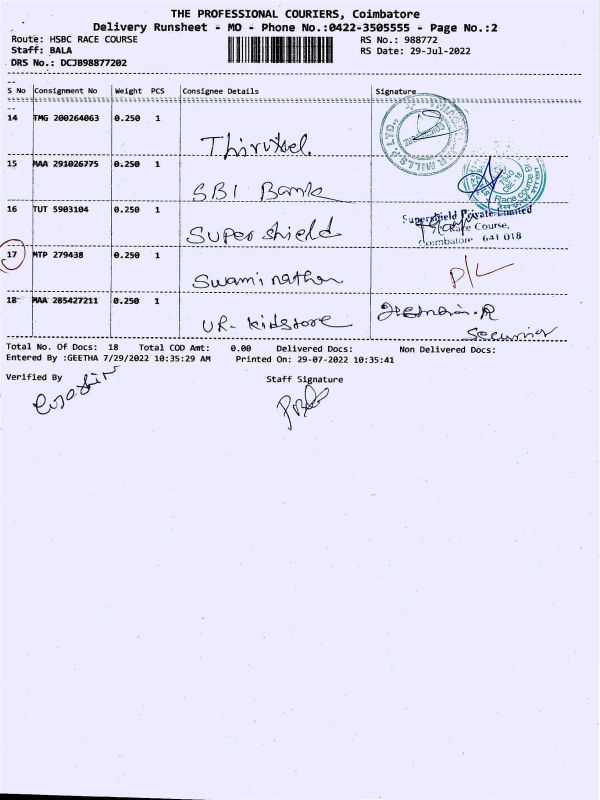 THE PROFESSIONAL COURIERS, Coimbatore
Delivery Runsheet - MO - Phone No.:0422-3505555 - Page No.:2
Route: HSBC RACE COURSE RS No.: 988772
Staff: BALA RS Date: 29-Jul-2022
DRS No.: DCJB98877202
S No Consignment No Weight PCS Consignee Details Signature
14 TMG 200264063 0.250 1
15 MAA 291026775 0.250 1 SBI Bank
16 TUT 5903104 0.250 1 Super shield
Supershield Private Limited
Race Course,
Coimbatore 641 018
17 MTP 279438 0.250 1 Swaminathan D/L
18 MAA 285427211 0.250 1 UR- kidstore
Total No. Of Docs: 18 Total COD Amt: 0.00 Delivered Docs: Non Delivered Docs:
Entered By :GEETHA 7/29/2022 10:35:29 AM Printed On: 29-07-2022 10:35:41
Verified By Staff Signature